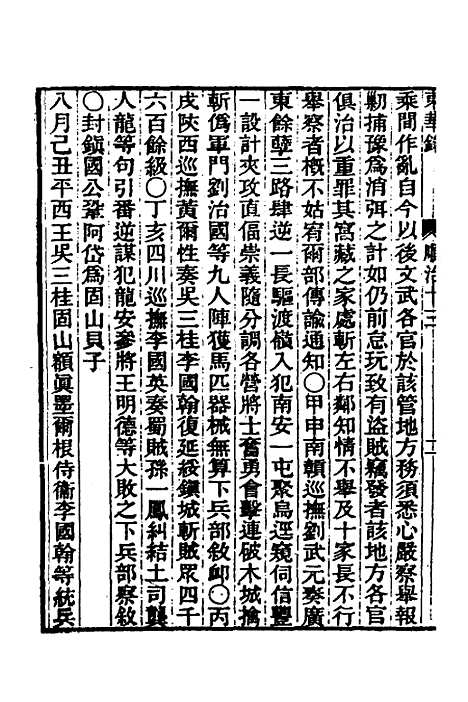 東華錄 順治十三 二
乘間作亂自今以後文武各官於該管地方務須悉心嚴察舉報
勦捕豫爲消弭之計如仍前怠玩致有盜賊竊發者該地方各官
俱治以重罪其窩藏之家處斬左右鄰知情不舉及十家長不行
舉察者槪不姑宥爾部傳諭通知〇甲申南贛巡撫劉武元奏廣
東餘孽三路肆逆一長驅渡嶺入犯南安一屯聚烏逕窺伺信豐
一設計夾攻直偪崇義隨分調各營將士奮勇會擊連破木城擒
斬僞軍門劉治國等九人陣獲馬匹器械無算下兵部敘卹〇丙
戌陝西巡撫黃爾性奏吳三桂李國翰復延綏鎭城斬賊眾四千
六百餘級〇丁亥四川巡撫李國英奏蜀賊孫一鳳糾結土司龔
人龍等句引番逆謀犯龍安參將王明德等大敗之下兵部察敘
〇封鎭國公鞏阿岱爲固山貝子
八月己丑平西王吳三桂固山額眞墨爾根侍衞李國翰等統兵